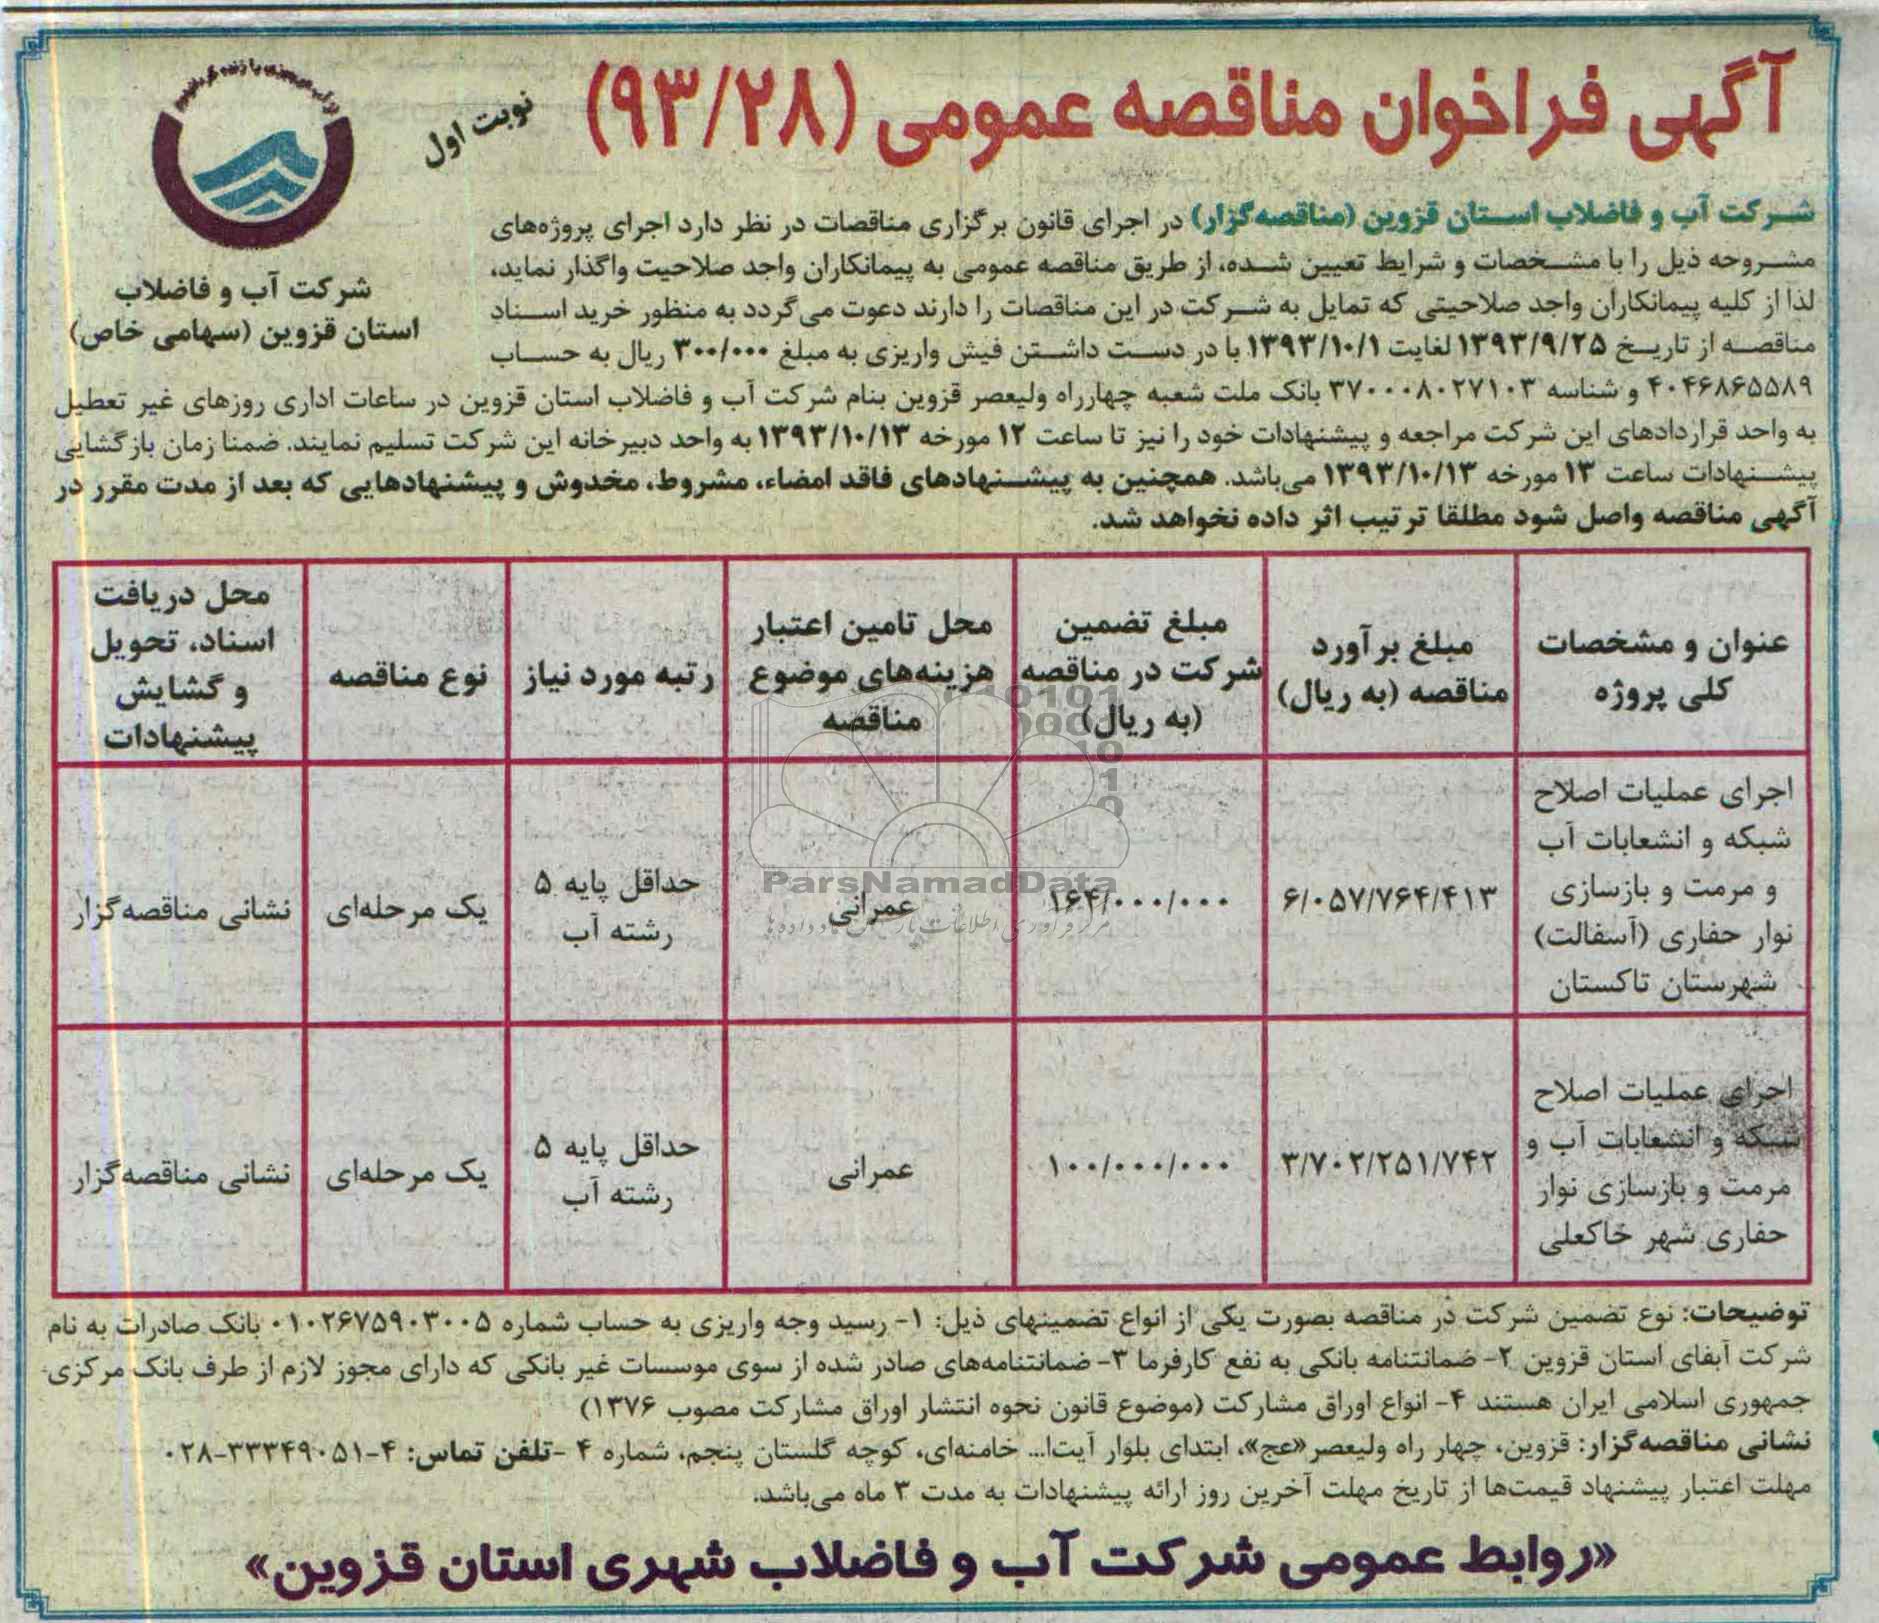 آگهی فراخوان مناقصه عمومی (۹۳/۲۸)
نوبت اول
شرکت آب و فاضلاب
استان قزوین (سهامی خاص)
شرکت آب و فاضلاب استان قزوین (مناقصه‌گزار) در اجرای قانون برگزاری مناقصات در نظر دارد اجرای پروژه‌های
مشروحه ذیل را با مشخصات و شرایط تعیین شده، از طریق مناقصه عمومی به پیمانکاران واجد صلاحیت واگذار نماید،
لذا از کلیه پیمانکاران واجد صلاحیتی که تمایل به شرکت در این مناقصات را دارند دعوت می‌گردد به منظور خرید اسناد
مناقصه از تاریخ ۱۳۹۳/۹/۲۵ لغایت ۱۳۹۳/۱۰/۱ با در دست داشتن فیش واریزی به مبلغ ۳۰۰/۰۰۰ ریال به حساب
۴۰۴۶۸۶۵۵۸۹ و شناسه ۳۷۰۰۰۸۰۲۷۱۰۳ بانک ملت شعبه چهارراه ولیعصر قزوین بنام شرکت آب و فاضلاب استان قزوین در ساعات اداری روزهای غیر تعطیل
به واحد قراردادهای این شرکت مراجعه و پیشنهادات خود را نیز تا ساعت ۱۲ مورخه ۱۳۹۳/۱۰/۱۳ به واحد دبیرخانه این شرکت تسلیم نمایند. ضمنا زمان بازگشایی
پیشنهادات ساعت ۱۳ مورخه ۱۳۹۳/۱۰/۱۳ می‌باشد. همچنین به پیشنهادهای فاقد امضاء، مشروط، مخدوش و پیشنهادهایی که بعد از مدت مقرر در
آگهی مناقصه واصل شود مطلقا ترتیب اثر داده نخواهد شد.
عنوان و مشخصات
کلی پروژه
مبلغ برآورد
مناقصه (به ریال)
مبلغ تضمین
شرکت در مناقصه
(به ریال)
محل تامین اعتبار
هزینه‌های موضوع
مناقصه
رتبه مورد نیاز
نوع مناقصه
محل دریافت
اسناد، تحویل
و گشایش
پیشنهادات
اجرای عملیات اصلاح
شبکه و انشعابات آب
و مرمت و بازسازی
نوار حفاری (آسفالت)
شهرستان تاکستان
۶/۰۵۷/۷۶۴/۴۱۳
۱۶۴/۰۰۰/۰۰۰
عمرانی
حداقل پایه ۵
رشته آب
یک مرحله‌ای
نشانی مناقصه‌گزار
اجرای عملیات اصلاح
شبکه و انشعابات آب و
مرمت و بازسازی نوار
حفاری شهر خاکعلی
۳/۷۰۲/۲۵۱/۷۴۲
۱۰۰/۰۰۰/۰۰۰
عمرانی
حداقل پایه ۵
رشته آب
یک مرحله‌ای
نشانی مناقصه‌گزار
ParsNamadData
توضیحات: نوع تضمین شرکت در مناقصه بصورت یکی از انواع تضمینهای ذیل: ۱- رسید وجه واریزی به حساب شماره ۰۱۰۲۶۷۵۹۰۳۰۰۵ بانک صادرات به نام
شرکت آبفای استان قزوین ۲- ضمانتنامه بانکی به نفع کارفرما ۳- ضمانتنامه‌های صادر شده از سوی موسسات غیر بانکی که دارای مجوز لازم از طرف بانک مرکزی
جمهوری اسلامی ایران هستند ۴- انواع اوراق مشارکت (موضوع قانون نحوه انتشار اوراق مشارکت مصوب ۱۳۷۶)
نشانی مناقصه‌گزار: قزوین، چهار راه ولیعصر«عج»، ابتدای بلوار آیت‌ا... خامنه‌ای، کوچه گلستان پنجم، شماره ۴ -تلفن تماس: ۴-۳۳۳۴۹۰۵۱-۰۲۸
مهلت اعتبار پیشنهاد قیمت‌ها از تاریخ مهلت آخرین روز ارائه پیشنهادات به مدت ۳ ماه می‌باشد.
«روابط عمومی شرکت آب و فاضلاب شهری استان قزوین»